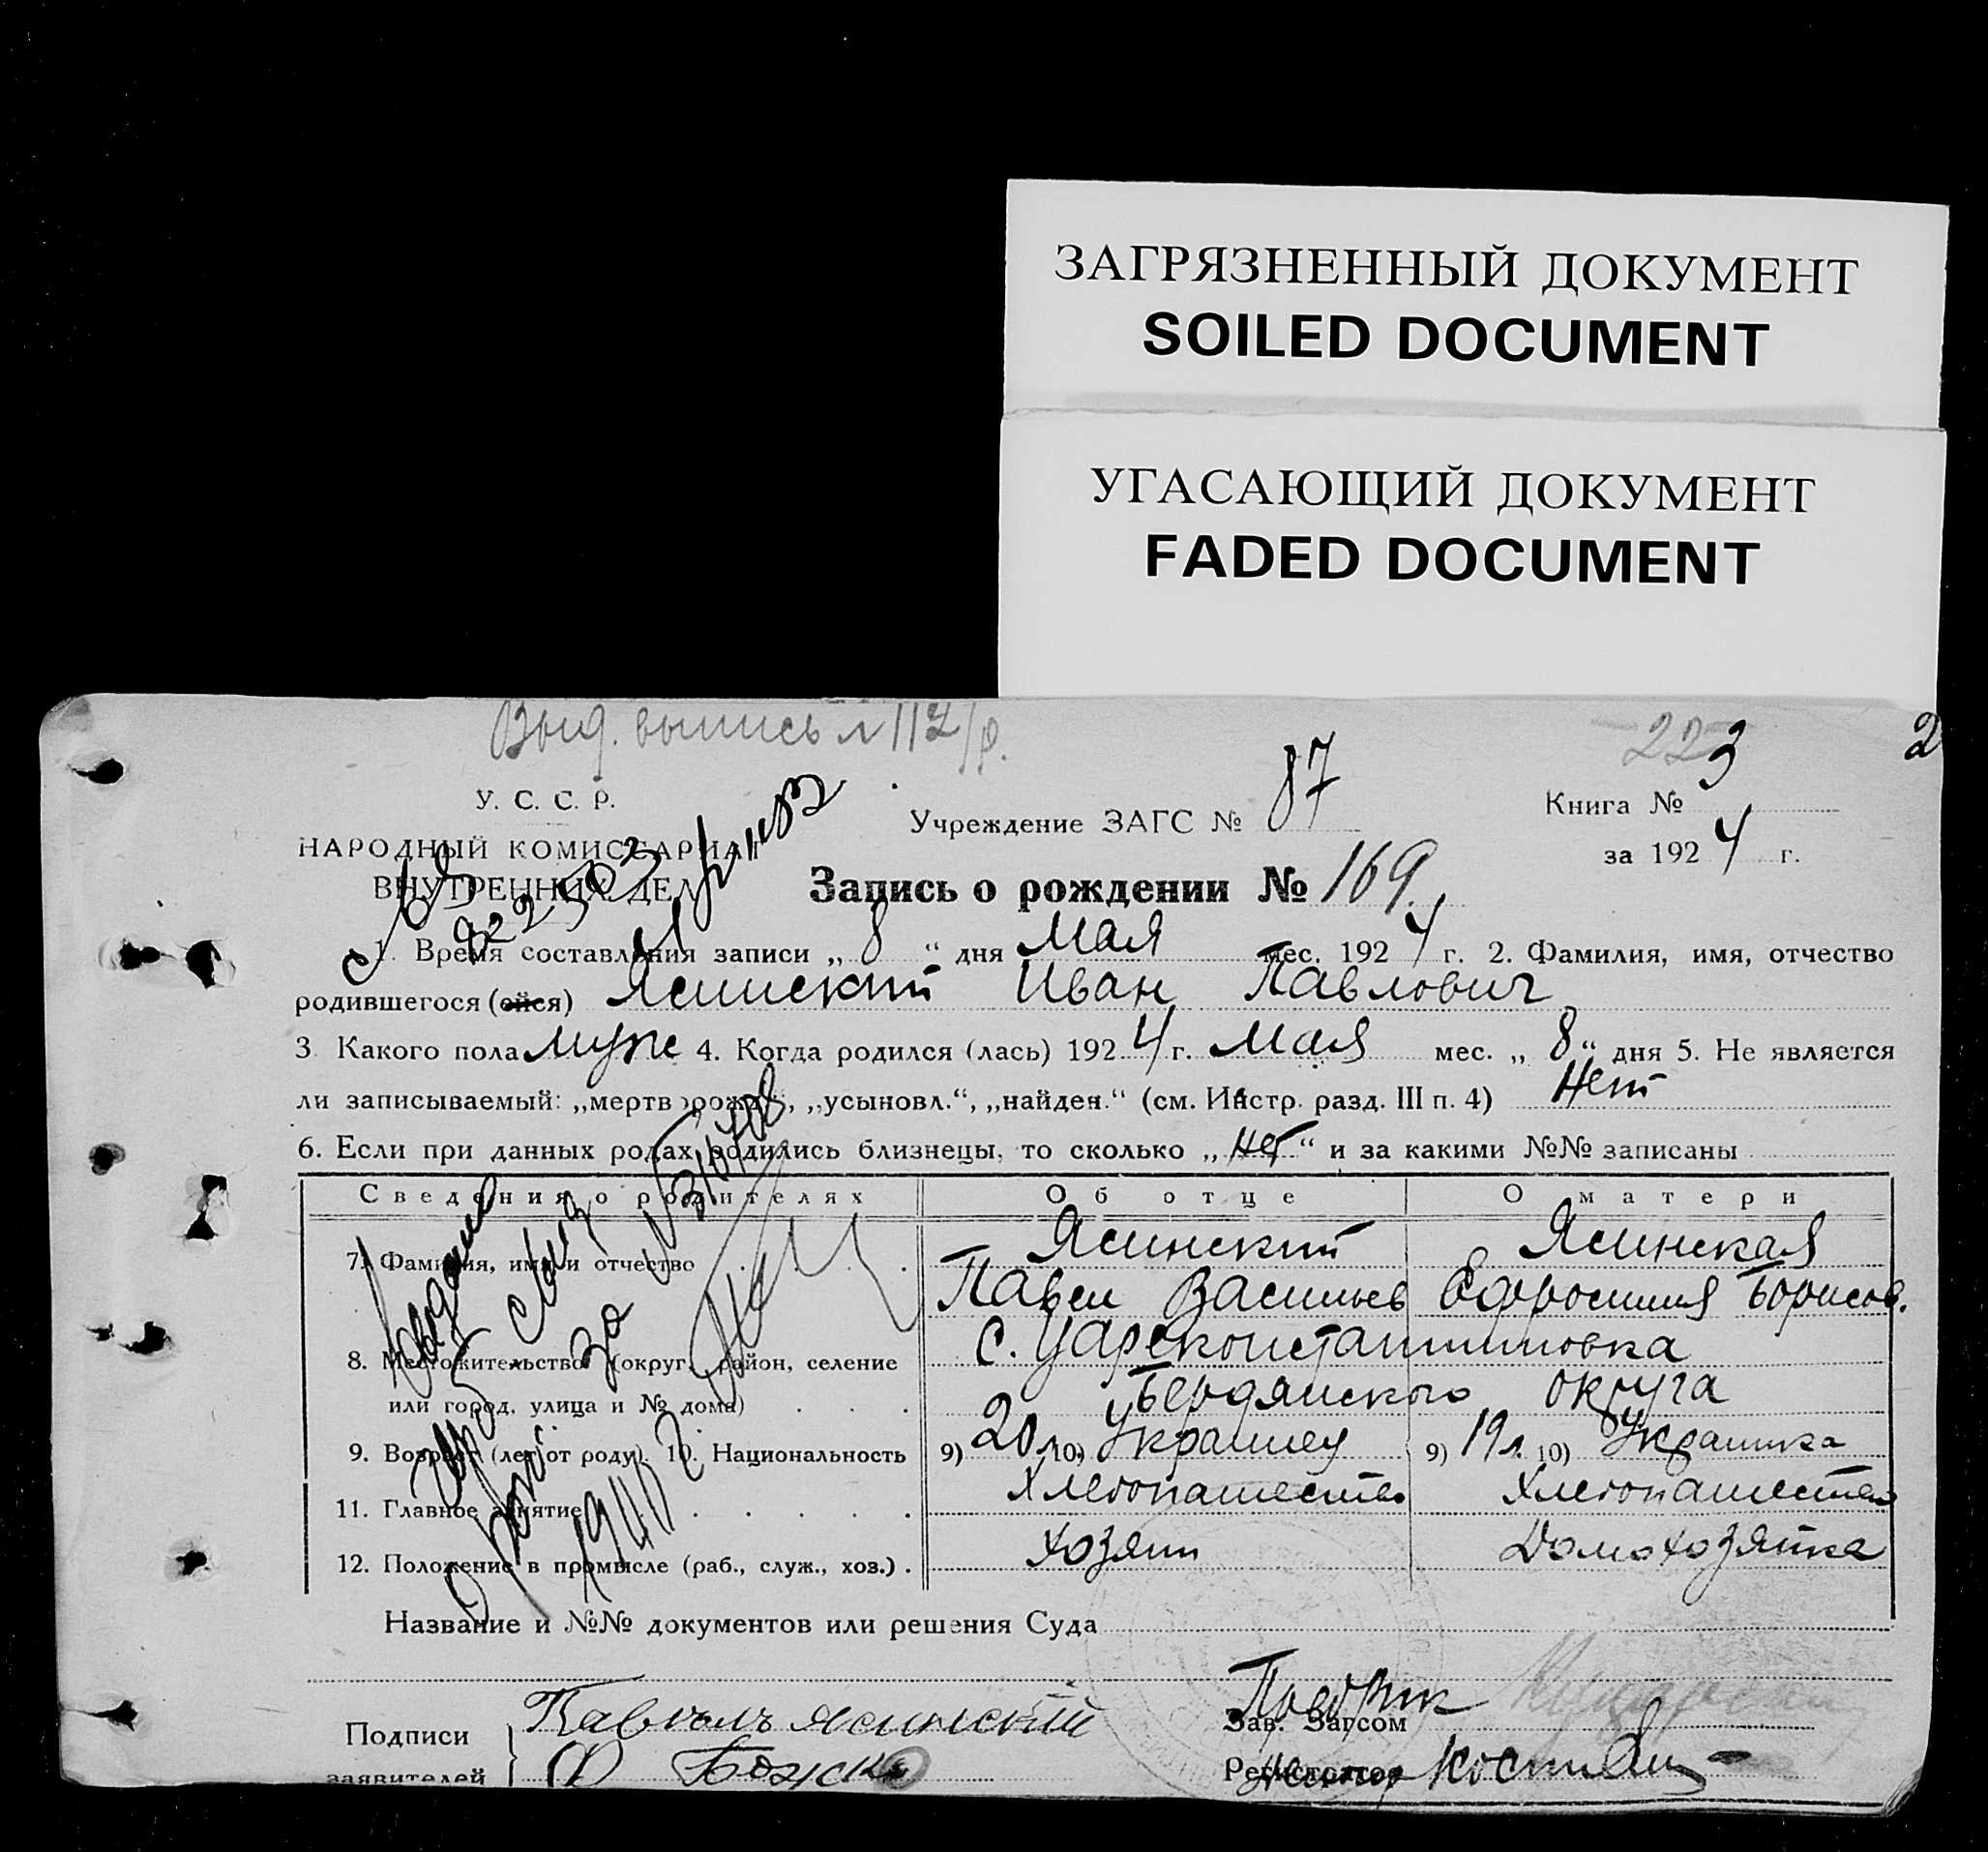 ЗАГРЯЗНЕННЫЙ ДОКУМЕНТ
SOILED DOCUMENT
УГАСАЮЩИЙ ДОКУМЕНТ
FADED DOCUMENT
Выд. выпись
223 2
У. С. С. Р.
НАРОДНЫЙ КОМИССАРИАТ
ВНУТРЕННИХ ДЕЛ
Учреждение ЗАГС № 87
Книга № 3
за 1924 г.
Запись о рождении № 169.
1. Время составления записи „ 8 “ дня Мая мес. 1924 г. 2. Фамилия, имя, отчество
родившегося (ейся) Ясинский Иван Павлович
3. Какого пола муж 4. Когда родился (лась) 1924 г. Мая мес. „ 8 “ дня 5. Не является
ли записываемый: „мертворожд“, „усыновл.“, „найден.“ (см. Инстр. разд. III п. 4) Нет
6. Если при данных родах родились близнецы, то сколько „ нет “ и за какими №№ записаны
Сведения о родителях Об отце О матери
7. Фамилия, имя и отчество Ясинский Ясинская
Павел Васильев Ефросиния Борисов.
8. Местожительство (округ, район, селение с. Цареконстантиновка
или город, улица и № дома) Бердянского округа
9. Возраст (лет от роду). 10. Национальность 9) 20 л. 10) Украинец 9) 19 л. 10) Украинка
11. Главное занятие Хлебопашество Хлебопашество
12. Положение в промысле (раб., служ., хоз.) Хозяин Домохозяйка
Название и №№ документов или решения Суда
Подписи Павелъ Ясинский Зав. Загсом
заявителей Ф Божко Регистратор
1940 г.